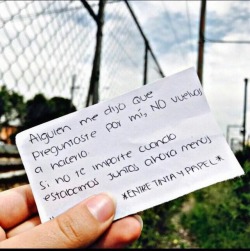 Alguien me dijo que
preguntaste por mi, NO vuelvas
a hacerlo.
Si no te importe cuando
estabamos juntos ahora menos
*ENTRE TINTA Y PAPEL*